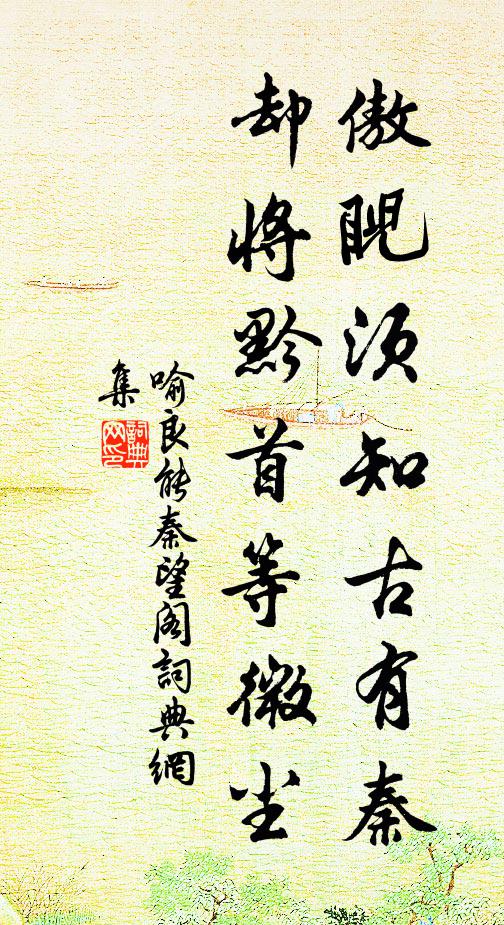 傲睨須知古有秦
却將黔首等微尘
喻良能秦望閣詞典網
集
詞典
网印